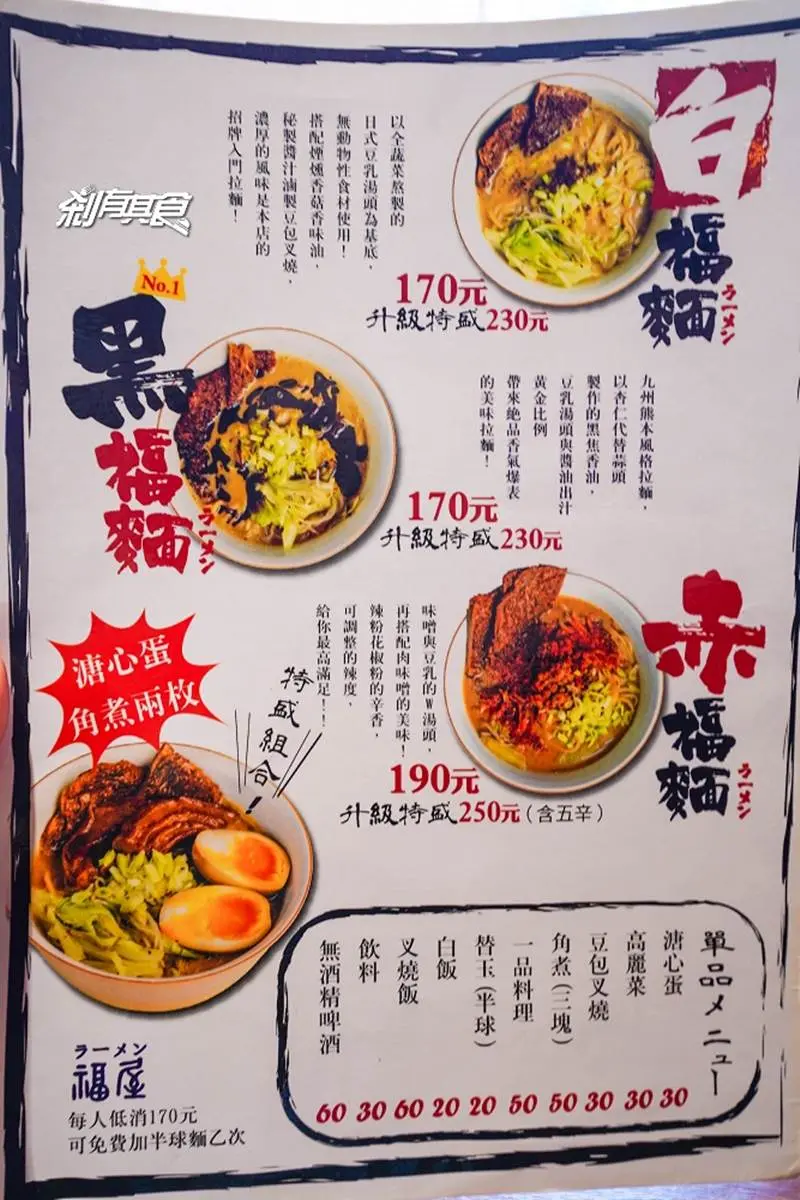 白福麵
ラーメン
以全蔬菜熬製的
日式豆乳湯頭為基底，
無動物性食材使用！
搭配煙燻香菇香味油，
秘製醬汁滷製豆包叉燒，
濃厚的風味是本店的
招牌入門拉麵！
170元
升級特盛230元
剎有其食
No.1
黑福麵
ラーメン
九州熊本風格拉麵，
以杏仁代替蒜頭
製作的黑焦香油，
豆乳湯頭與醬油出汁
黃金比例
帶來絕品香氣爆表
的美味拉麵！
170元
升級特盛230元
赤福麵
ラーメン
味噌與豆乳的W湯頭，
再搭配肉味噌的美味！
辣粉花椒粉的辛香，
可調整的辣度，
給你最高滿足！！
190元
升級特盛250元（含五辛）
溏心蛋
角煮兩枚
特盛組合！
單品メニュー
溏心蛋 30
高麗菜 30
豆包叉燒 30
角煮（三塊） 50
一品料理 50
替玉（半球） 20
白飯 20
叉燒飯 60
飲料 30
無酒精啤酒 60
ラーメン
福屋
每人低消170元
可免費加半球麵乙次